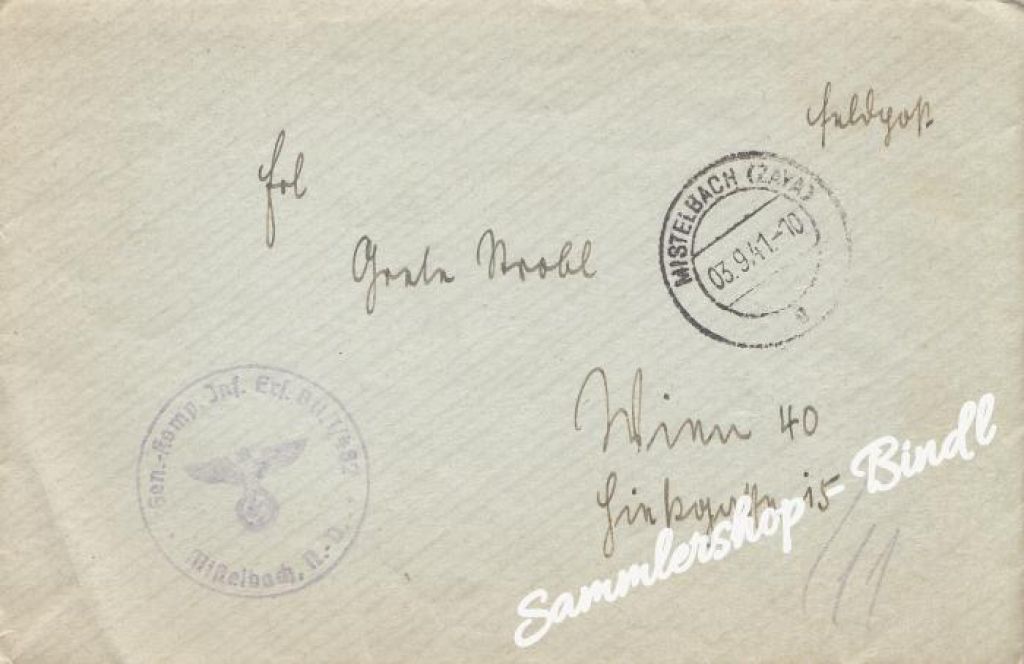 Feldpost
Frl
Grete Strobl
MISTELBACH (ZAYA)
03.9.41.-10
Wien 40
15
Gen.-Komp. Inf. Ers. Btl. I/482
Mistelbach, N.-D.
Sammlershop - Bindl